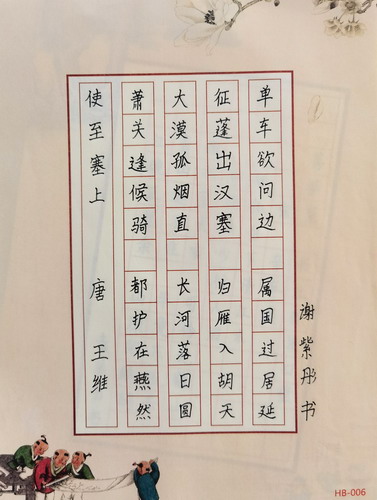 谢紫彤书
单车欲问边 属国过居延
征蓬出汉塞 归雁入胡天
大漠孤烟直 长河落日圆
萧关逢候骑 都护在燕然
使至塞上 唐 王维
HB-006